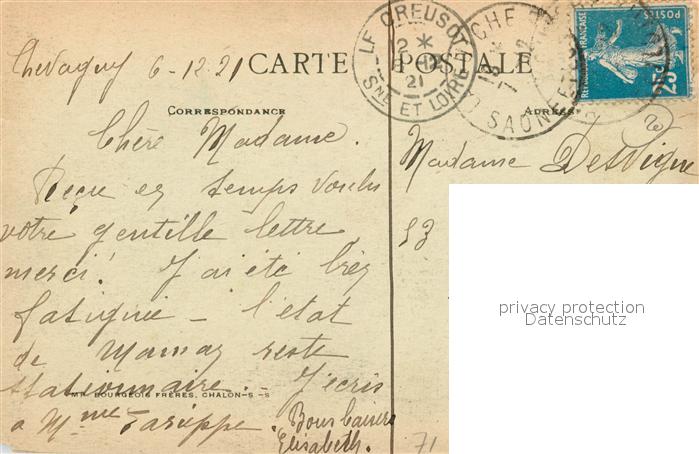 Chevagny 6-12.21
CARTE POSTALE
LE CREUSOT
SNE ET LOIRE
21
SAÔNE
POSTES
25c
CORRESPONDANCE
ADRESSE
Chère Madame.
Reçue en temps voulu
votre gentille lettre
merci! J'ai été très
fatiguée – l'état
de Maman reste
stationnaire. – J'écris
a Mme
Bons baisers
Elisabeth.
IMP. BOURGEOIS FRÈRES, CHALON-S-S
Madame Desvigne
53
71
privacy protection
Datenschutz